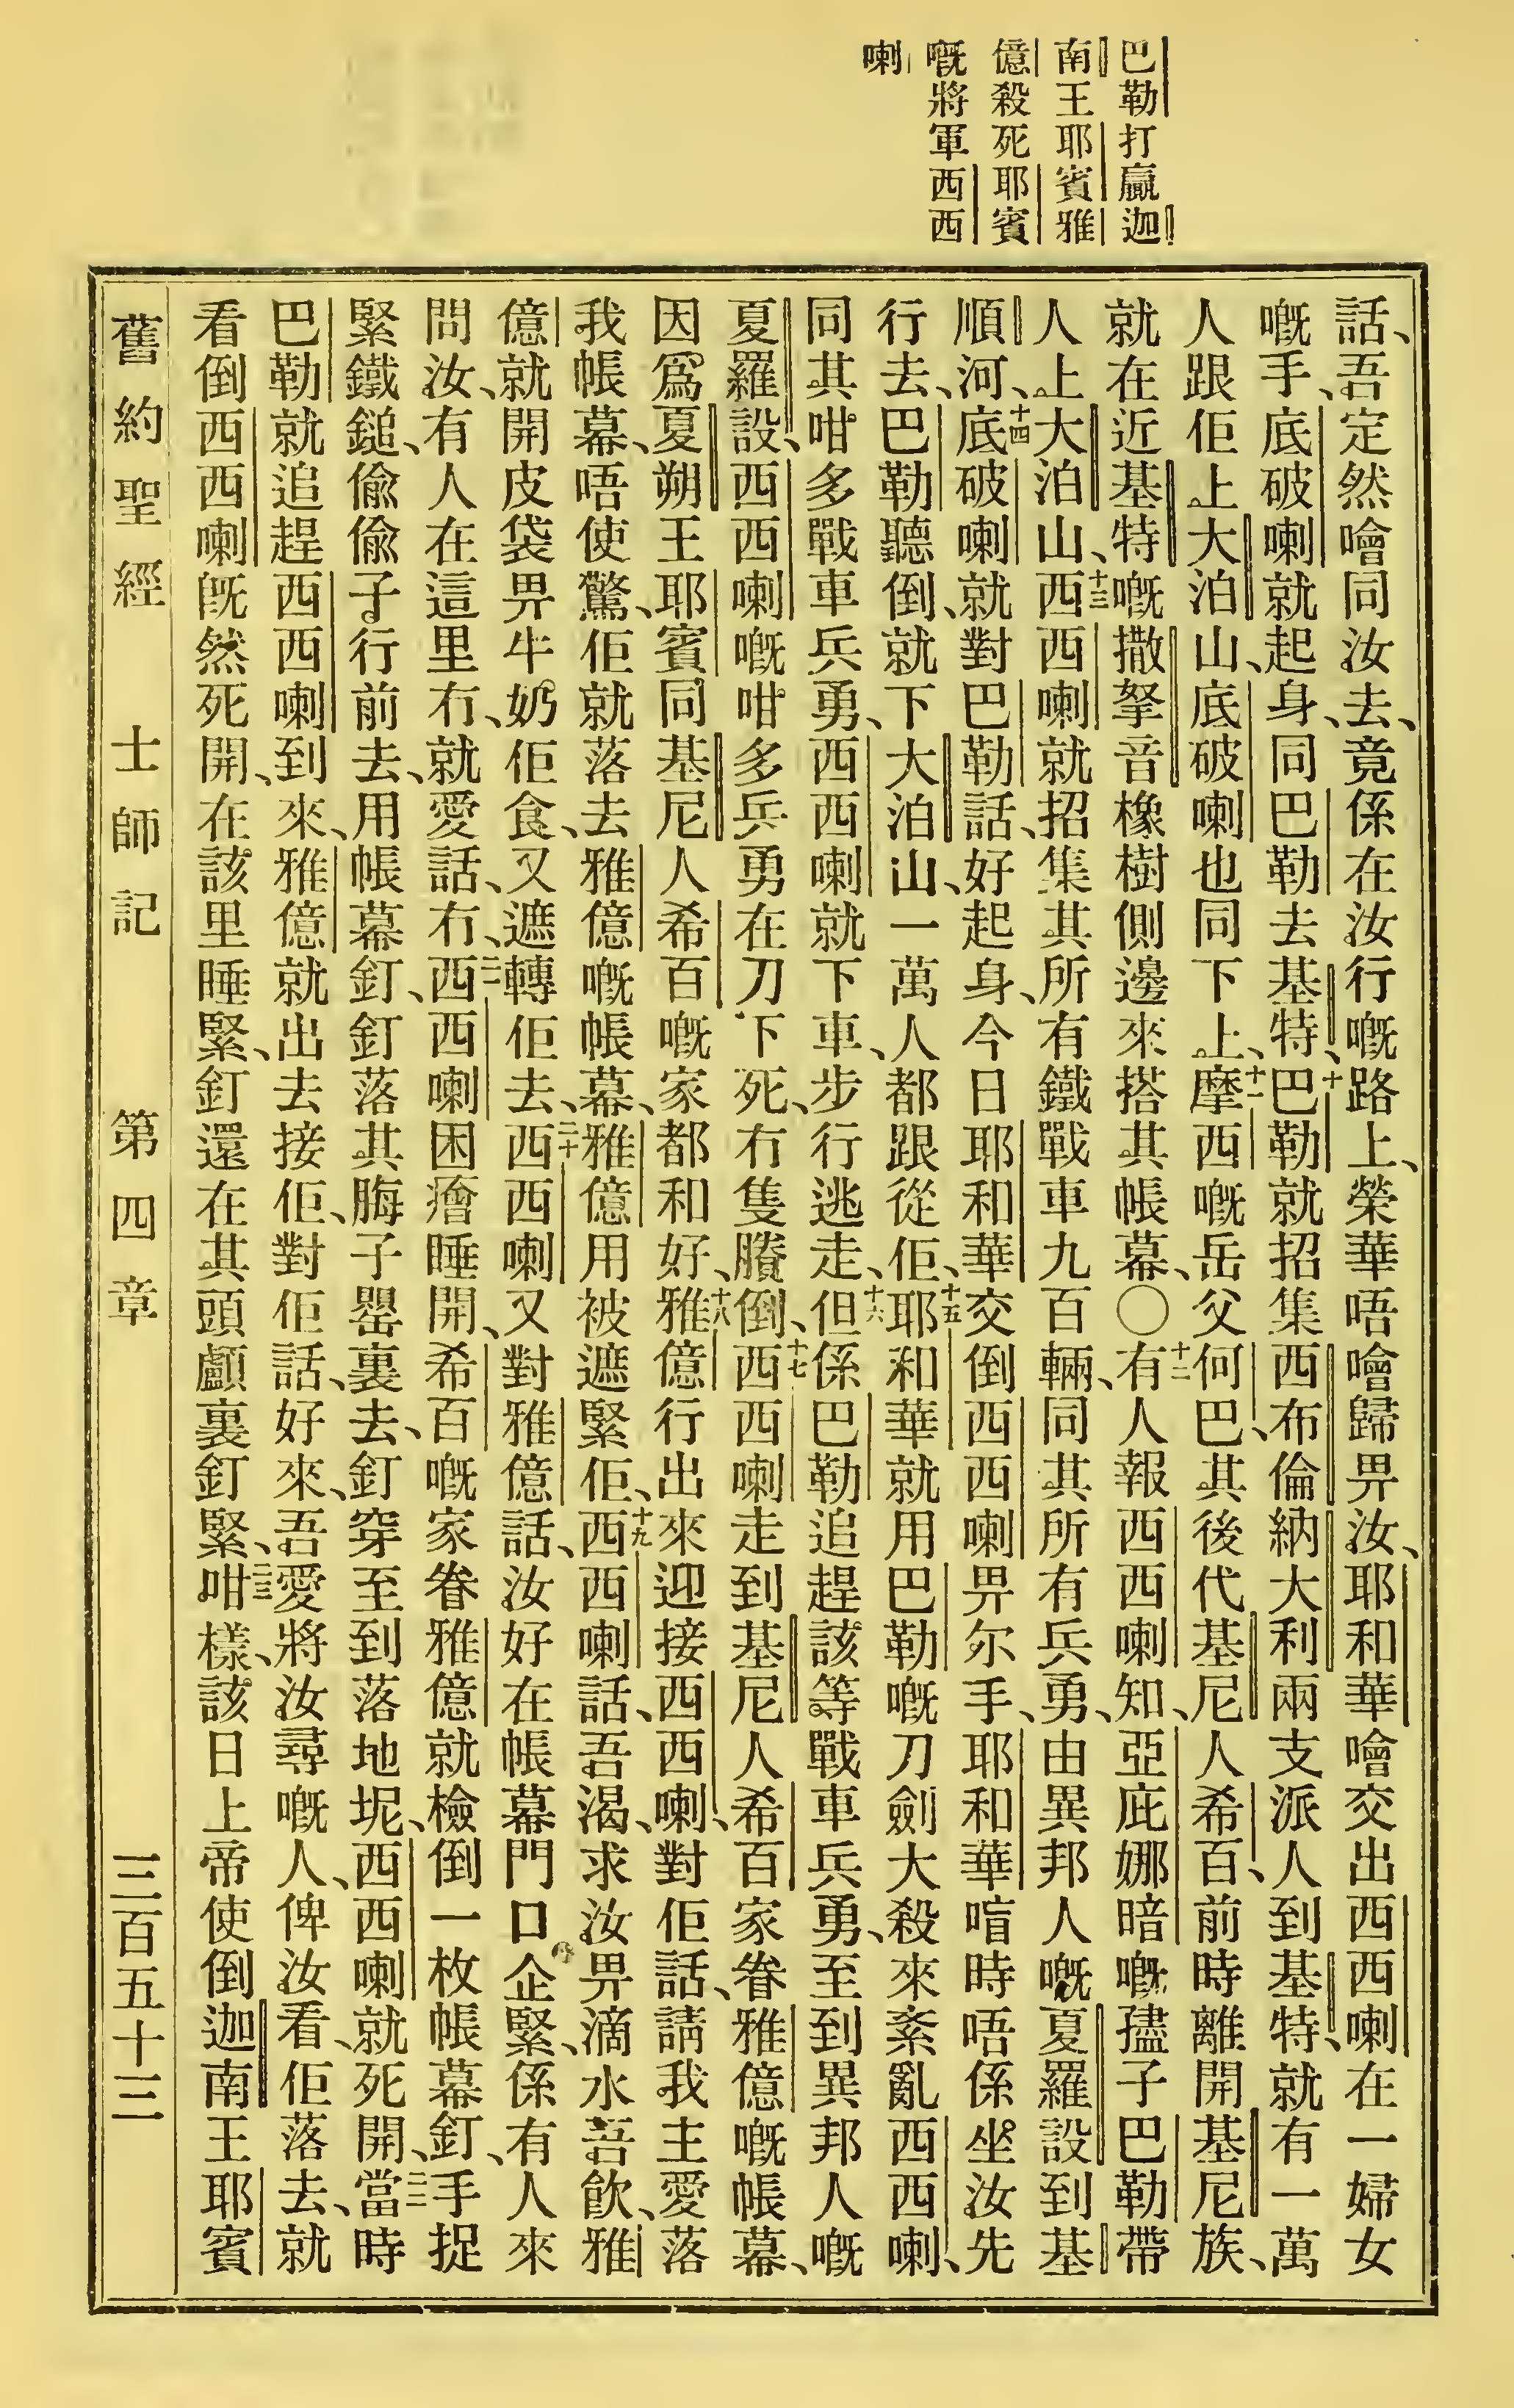 巴勒打贏迦
南王耶賓雅
億殺死耶賓
嘅將軍西西
喇
話、吾定然噲同汝去、竟係在汝行嘅路上、榮華唔噲歸畀汝、耶和華噲交出西西喇在一婦女
嘅手、底破喇就起身、同巴勒去基特、十巴勒就招集西布倫納大利兩支派人到基特、就有一萬
人跟佢上大泊山、底破喇也同下上、十一摩西嘅岳父何巴、其後代基尼人希百、前時離開基尼族、
就在近基特嘅撒拏音橡樹側邊來搭其帳幕、〇十二有人報西西喇知、亞庇娜暗嘅孻子巴勒帶
人上大泊山、十三西西喇就招集其所有鐵戰車九百輛、同其所有兵勇、由異邦人嘅夏羅設到基
順河、十四底破喇就對巴勒話、好起身、今日耶和華交倒西西喇畀尔手、耶和華㫾時唔係坐汝先
行去、巴勒聽倒、就下大泊山、一萬人都跟從佢、十五耶和華就用巴勒嘅刀劍大殺來紊亂西西喇、
同其咁多戰車兵勇、西西喇就下車、步行逃走、十六但係巴勒追趕該等戰車兵勇、至到異邦人嘅
夏羅設、西西喇嘅咁多兵勇在刀下死、冇隻賸倒、十七西西喇走到基尼人希百家眷雅億嘅帳幕、
因爲夏朔王耶賓同基尼人希百嘅家都和好、十八雅億行出來迎接西西喇、對佢話、請我主愛落
我帳幕、唔使驚、佢就落去雅億嘅帳幕、雅億用被遮緊佢、十九西西喇話、吾渴、求汝畀滴水吾飲、雅
億就開皮袋畀牛奶佢食、又遮轉佢去、二十西西喇又對雅億話、汝好在帳幕門口企緊、係有人來
問汝、有人在這里冇、就愛話、冇、二一西西喇困癐睡開、希百嘅家眷雅億就檢倒一枚帳幕釘、手捉
緊鐵鎚、偸偸子行前去、用帳幕釘、釘落其脢子罌裏去、釘穿至到落地坭、西西喇就死開、二二當時
巴勒就追趕西西喇到來、雅億就出去接佢、對佢話、好來、吾愛將汝尋嘅人、俾汝看、佢落去、就
看倒西西喇旣然死開、在該里睡緊、釘還在其頭顱裏釘緊、二三咁樣、該日上帝使倒迦南王耶賓
舊約聖經 士師記 第四章 三百五十三